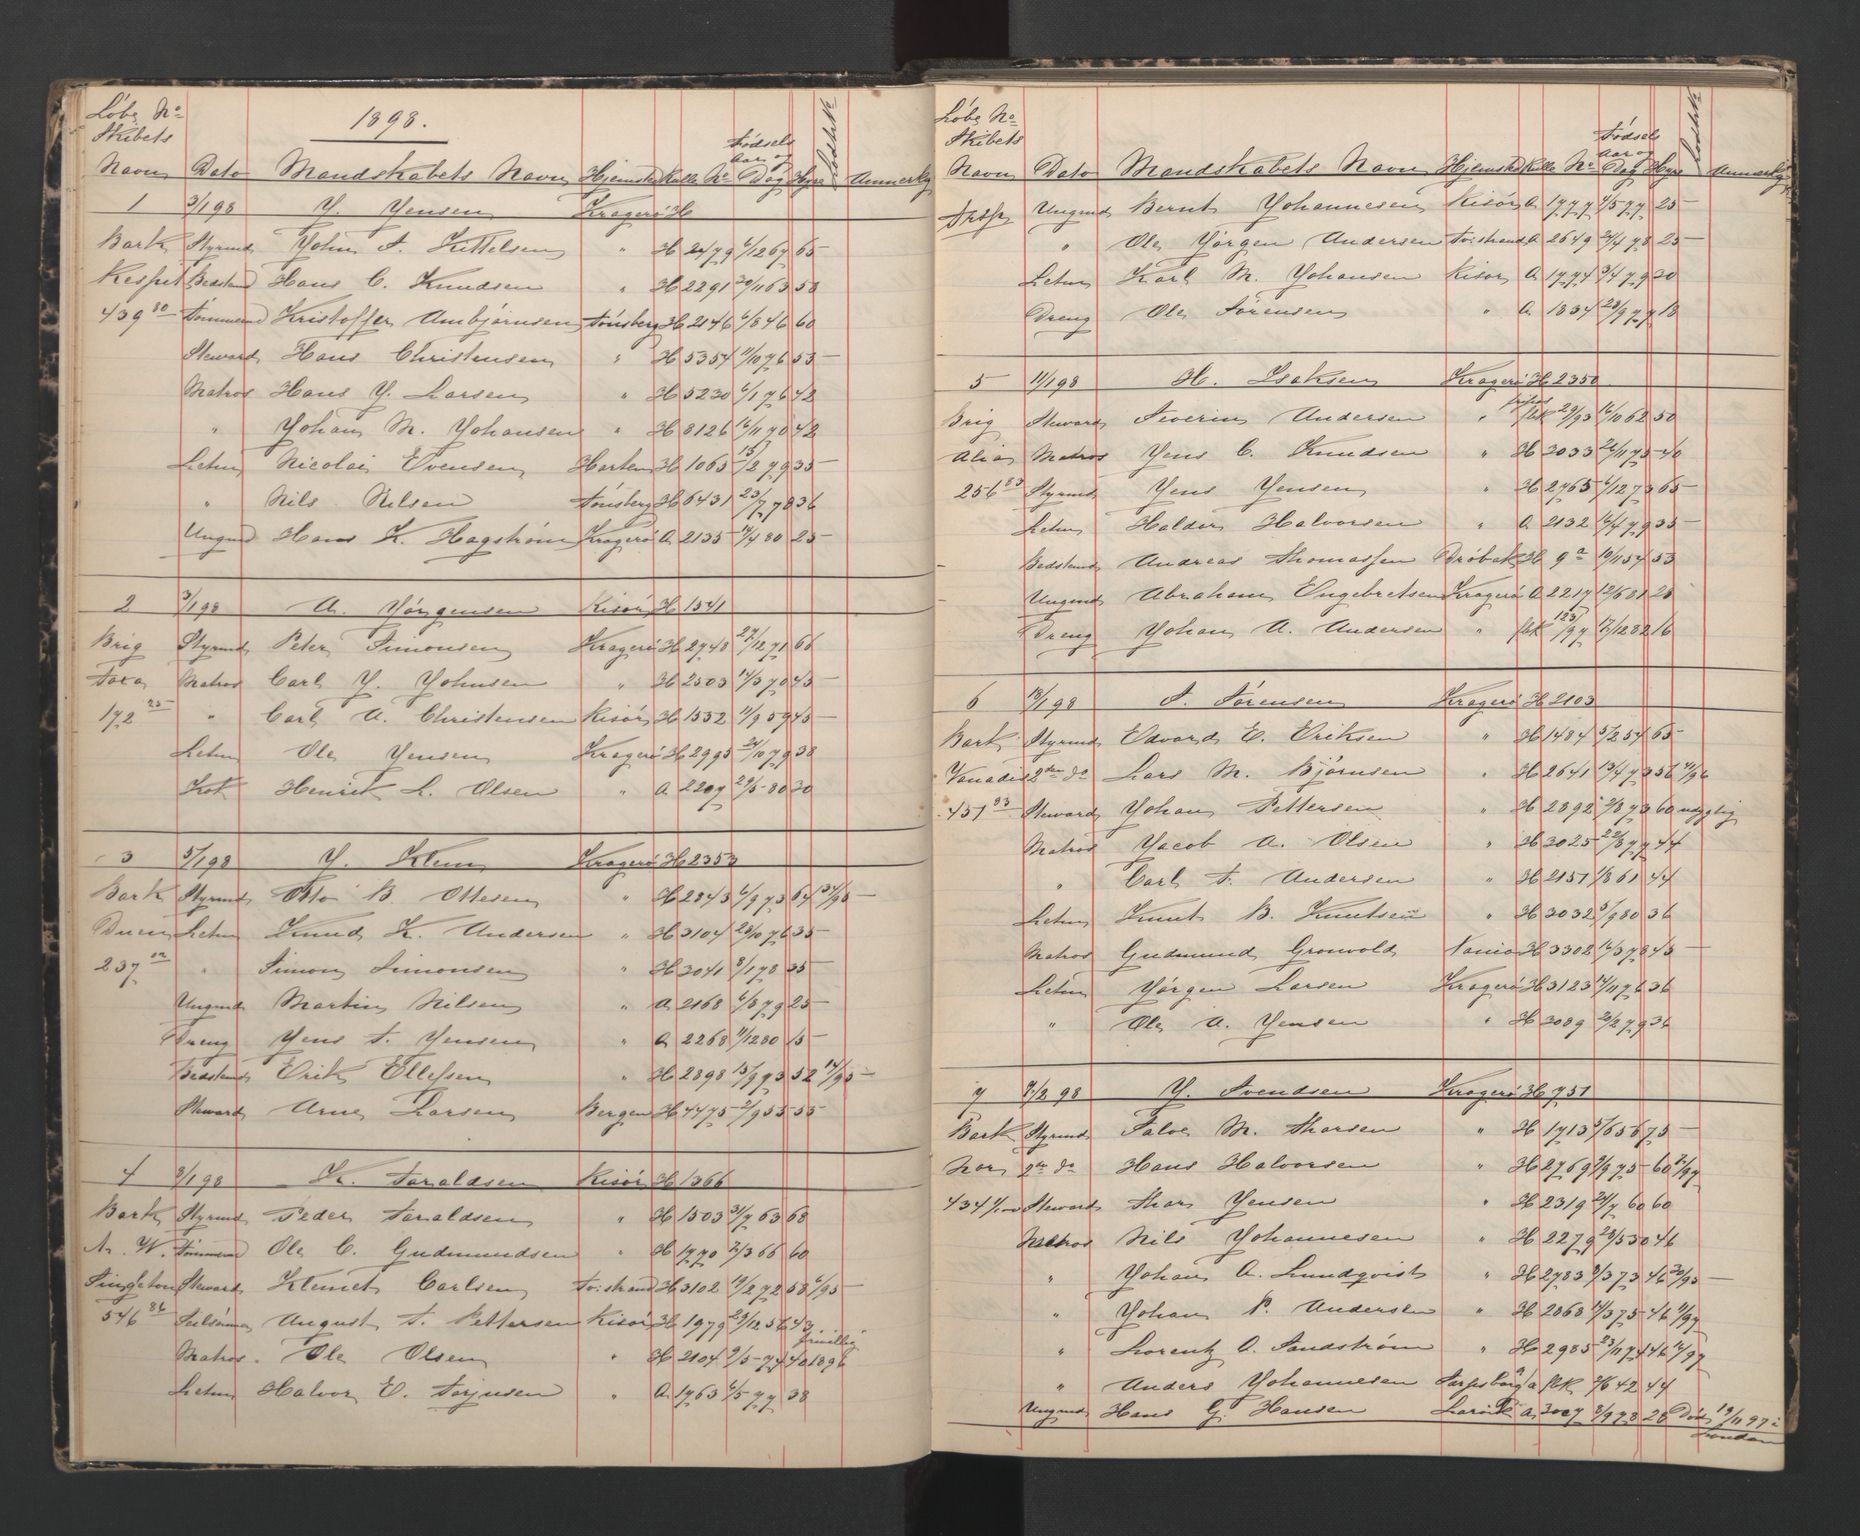 Løbe No
Skibets
1898.
Fødsels
Aar og
Navn Dato Mandskabets Navn Hjemsted Rulle No Dag Hyre Anmerkg
1 3/1 98 J. Jensen Kragerø H
Bark Styrmd John A. Kittelsen " H 2479 6/12 67 65
Respit Bedstmd Hans C. Knudsen " H 2291 20/11 63 50
439 80 Tømmermd Kristoffer Ambjørnsen Tønsberg H 2146 6/8 46 60
Steward Hans Christensen " H 5354 11/10 76 53
Matros Hans J. Larsen " H 5230 6/1 76 42
" Johan M. Johansen " H 8126 16/11 70 42
Letm Nicolai Evensen Horten H 1065 15/2 79 35
" Nils Nilsen Tønsberg H 6431 23/7 78 36
Ungmd Hans K. Hagstrøm Kragerø A 2135 14/4 80 25
2 3/1 98 A. Jørgensen Risør H 1541
Brig Styrmd Peter Simonsen Kragerø H 2748 27/12 71 66
Matros Carl J. Johnsen " H 2503 14/3 70 45
172 25 " Carl A. Christensen Risør H 1532 11/9 59 45
Letm Ole Jensen Kragerø H 2995 24/10 79 38
Kok Henrik L. Olsen " A 2207 29/5 80 30
3 5/1 98 J. Klem Kragerø H 2353
Bark Styrmd Otto B. Ottesen " H 2843 6/9 73 64
Duen Letm Knud K. Andersen " H 3104 23/10 76 35
237 " Simon Simonsen " H 3041 8/1 78 35
Ungmd Martin Nilsen " A 2168 6/8 79 25
Dreng Jens A. Jensen " A 2268 11/12 80 15
Bedstmd Erik Ellefsen " H 2898 15/9 73 52 14/95
Steward Arne Larsen Bergen H 4475 2/9 55 55
4 8/1 98 K. Taraldsen Risør H 1366
Bark Styrmd Peder Taraldsen " H 1503 31/7 63 68
N. W. Tømmermd Ole C. Gudmundsen " H 1770 7/3 66 60
Singleton Steward Klemet Carlsen Tvistrand H 3102 19/2 72 58 6/95
546 86 Seilsømmer August A. Pettersen Risør H 1979 29/12 56 43
frivillig
Matros Ole Olsen " H 2104 9/5 74 40 1896
Letm Halvor E. Torjusen " A 1763 6/5 77 38
Løbe No
Skibets
Fødsels
Aar og
Navn Dato Mandskabets Navn Hjemsted Rulle No Dag Hyre Anmerkg
Ungmd Bernt Johannesen Risør A 1777 4/5 77 25
" Ole Jørgen Andersen Tvistrand A 2649 24/4 78 25
Letm Karl M. Johansen Risør A 1774 3/4 79 30
Dreng Ole Sørensen " A 1834 28/9 77 18
5 11/1 98 H. Isaksen Kragerø H 2350
Brig Steward Severin Andersen " 29/93 16/10 62 50
Alia Matros Jens C. Knudsen " H 3033 24/11 75 40
256 83 Styrmd Jens Jensen " H 2765 6/12 73 65
Letm Haldor Halvorsen " A 2132 16/4 79 35
Bedstmd Andreas Thomassen Drøbak H 9a 10/11 54 53
Ungmd Abraham Engebretsen Kragerø A 2217 12/6 81 25
Dreng Johan A. Andersen " 123/97 17/12 82 16
6 13/1 98 S. Sørensen Kragerø H 2103
Bark Styrmd Edvard E. Eriksen " H 1484 5/2 54 65
Vanadis 2den do Lars M. Bjørnsen " H 2641 13/4 73 56 4/96
451 83 Steward Johan Pettersen " H 2892 2/8 73 60 udygtig
Matros Jacob A. Olsen " H 3025 22/8 77 44
" Carl A. Andersen " H 2151 1/8 61 44
Letm Knut B. Knutsen " H 3032 5/9 80 36
Matros Gudmund Gronvold H 3302 16/3 78 45
Letm Jørgen Larsen Kragerø H 3123 14/11 76 36
" Ole A. Jensen " H 3089 20/2 79 36
7 7/2 98 J. Svendsen Kragerø H 751
Bark Styrmd Salve M. Thorsen " H 1713 5/6 56 75
2den do Hans Halvorsen " H 2769 9/9 75 60 2/97
434 Steward Thor Jensen " H 2319 24/7 60 60
Matros Nils Johannesen " H 2279 28/5 50 46
" Johan A. Lundqvist " H 2783 8/3 73 46 20/95
" Johan P. Andersen " H 2868 14/3 75 46 9/97
" Lorentz O. Sandstrøm " H 2985 23/11 74 46 12/97
" Anders Johannesen Sarpsborg 2/6 42 44
Ungmd Hans G. Hansen Larvik A 3007 8/9 78 28 Død 19/11 97 i
London